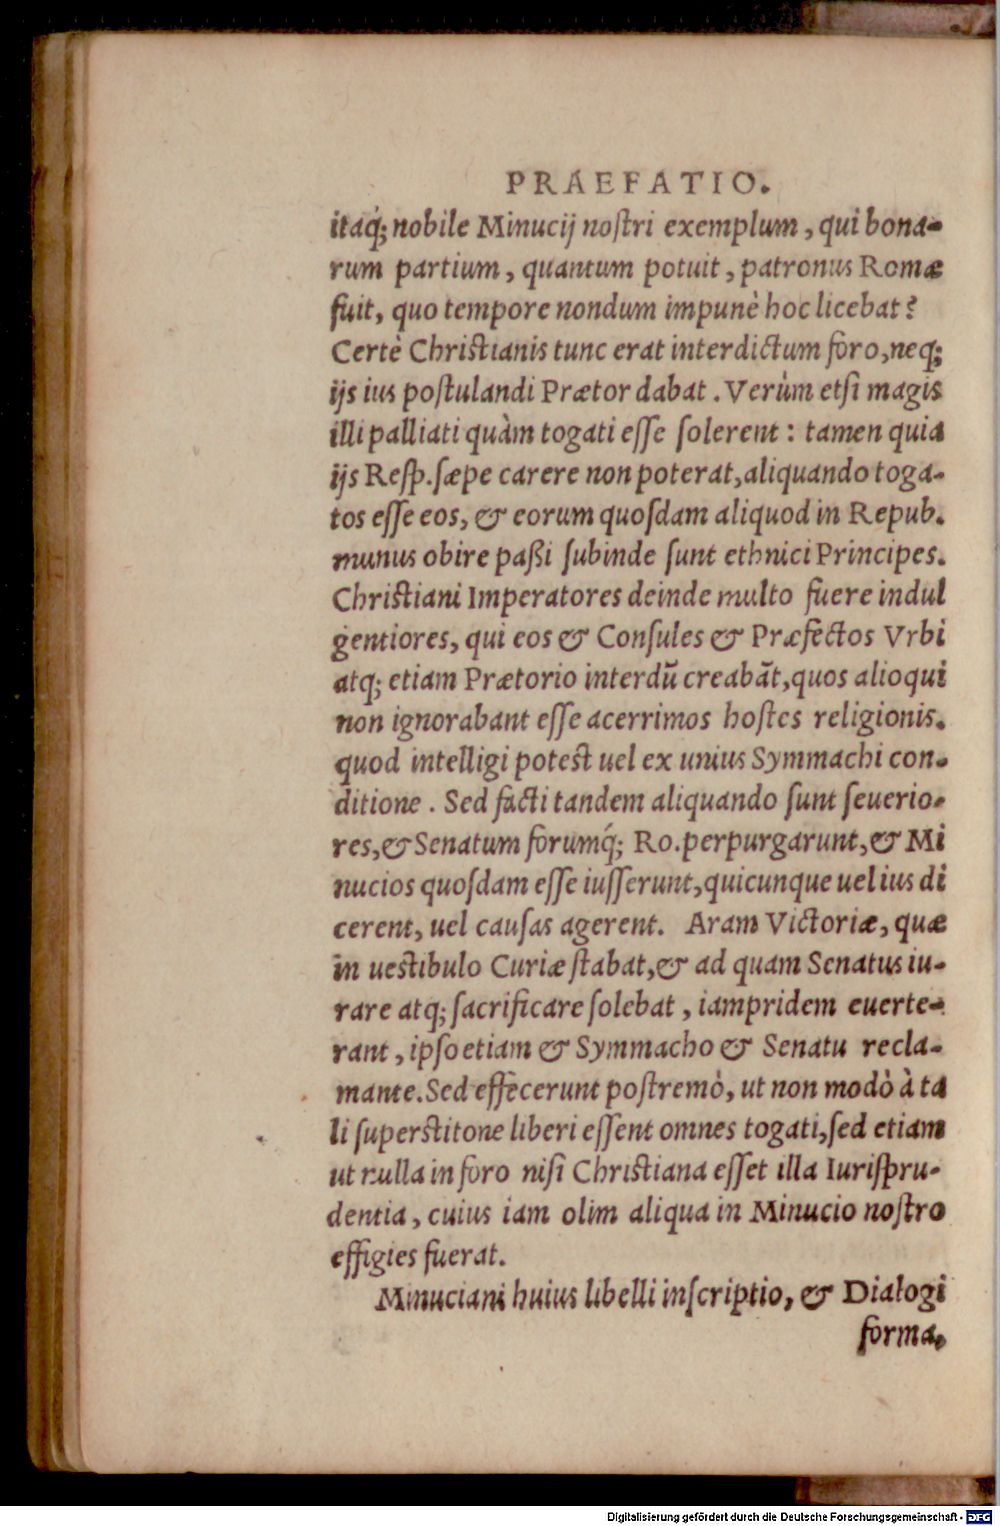 PRAEFATIO.
itaq́; nobile Minucij noſtri exemplum, qui bona-
rum partium, quantum potuit, patronus Romæ
fuit, quo tempore nondum impunè hoc licebat?
Certè Chriſtianis tunc erat interdictum foro, neq;
ijs ius poſtulandi Prætor dabat. Verùm etſi magis
illi palliati quàm togati eſſe ſolerent: tamen quia
ijs Reſp. ſæpe carere non poterat, aliquando toga-
tos eſſe eos, & eorum quoſdam aliquod in Repub.
munus obire paßi ſubinde ſunt ethnici Principes.
Chriſtiani Imperatores deinde multo fuere indul
gentiores, qui eos & Conſules & Præfectos Vrbi
atq; etiam Prætorio interdū creabāt, quos alioqui
non ignorabant eſſe acerrimos hoſtes religionis.
quod intelligi poteſt uel ex unius Symmachi con-
ditione. Sed facti tandem aliquando ſunt ſeuerio-
res, & Senatum forumq́; Ro. perpurgarunt, & Mi
nucios quoſdam eſſe iuſſerunt, quicunque uel ius di
cerent, uel cauſas agerent. Aram Victoriæ, quæ
in ueſtibulo Curiæ ſtabat, & ad quam Senatus iu-
rare atq; ſacrificare ſolebat, iampridem euerte-
rant, ipſo etiam & Symmacho & Senatu recla-
mante. Sed effècerunt poſtremò, ut non modò à ta
li ſuperſtitone liberi eſſent omnes togati, ſed etiam
ut nulla in foro niſi Chriſtiana eſſet illa Iuriſpru-
dentia, cuius iam olim aliqua in Minucio noſtro
effigies fuerat.
Minuciani huius libelli inſcriptio, & Dialogi
forma,
Digitalisierung gefördert durch die Deutsche Forschungsgemeinschaft - DFG